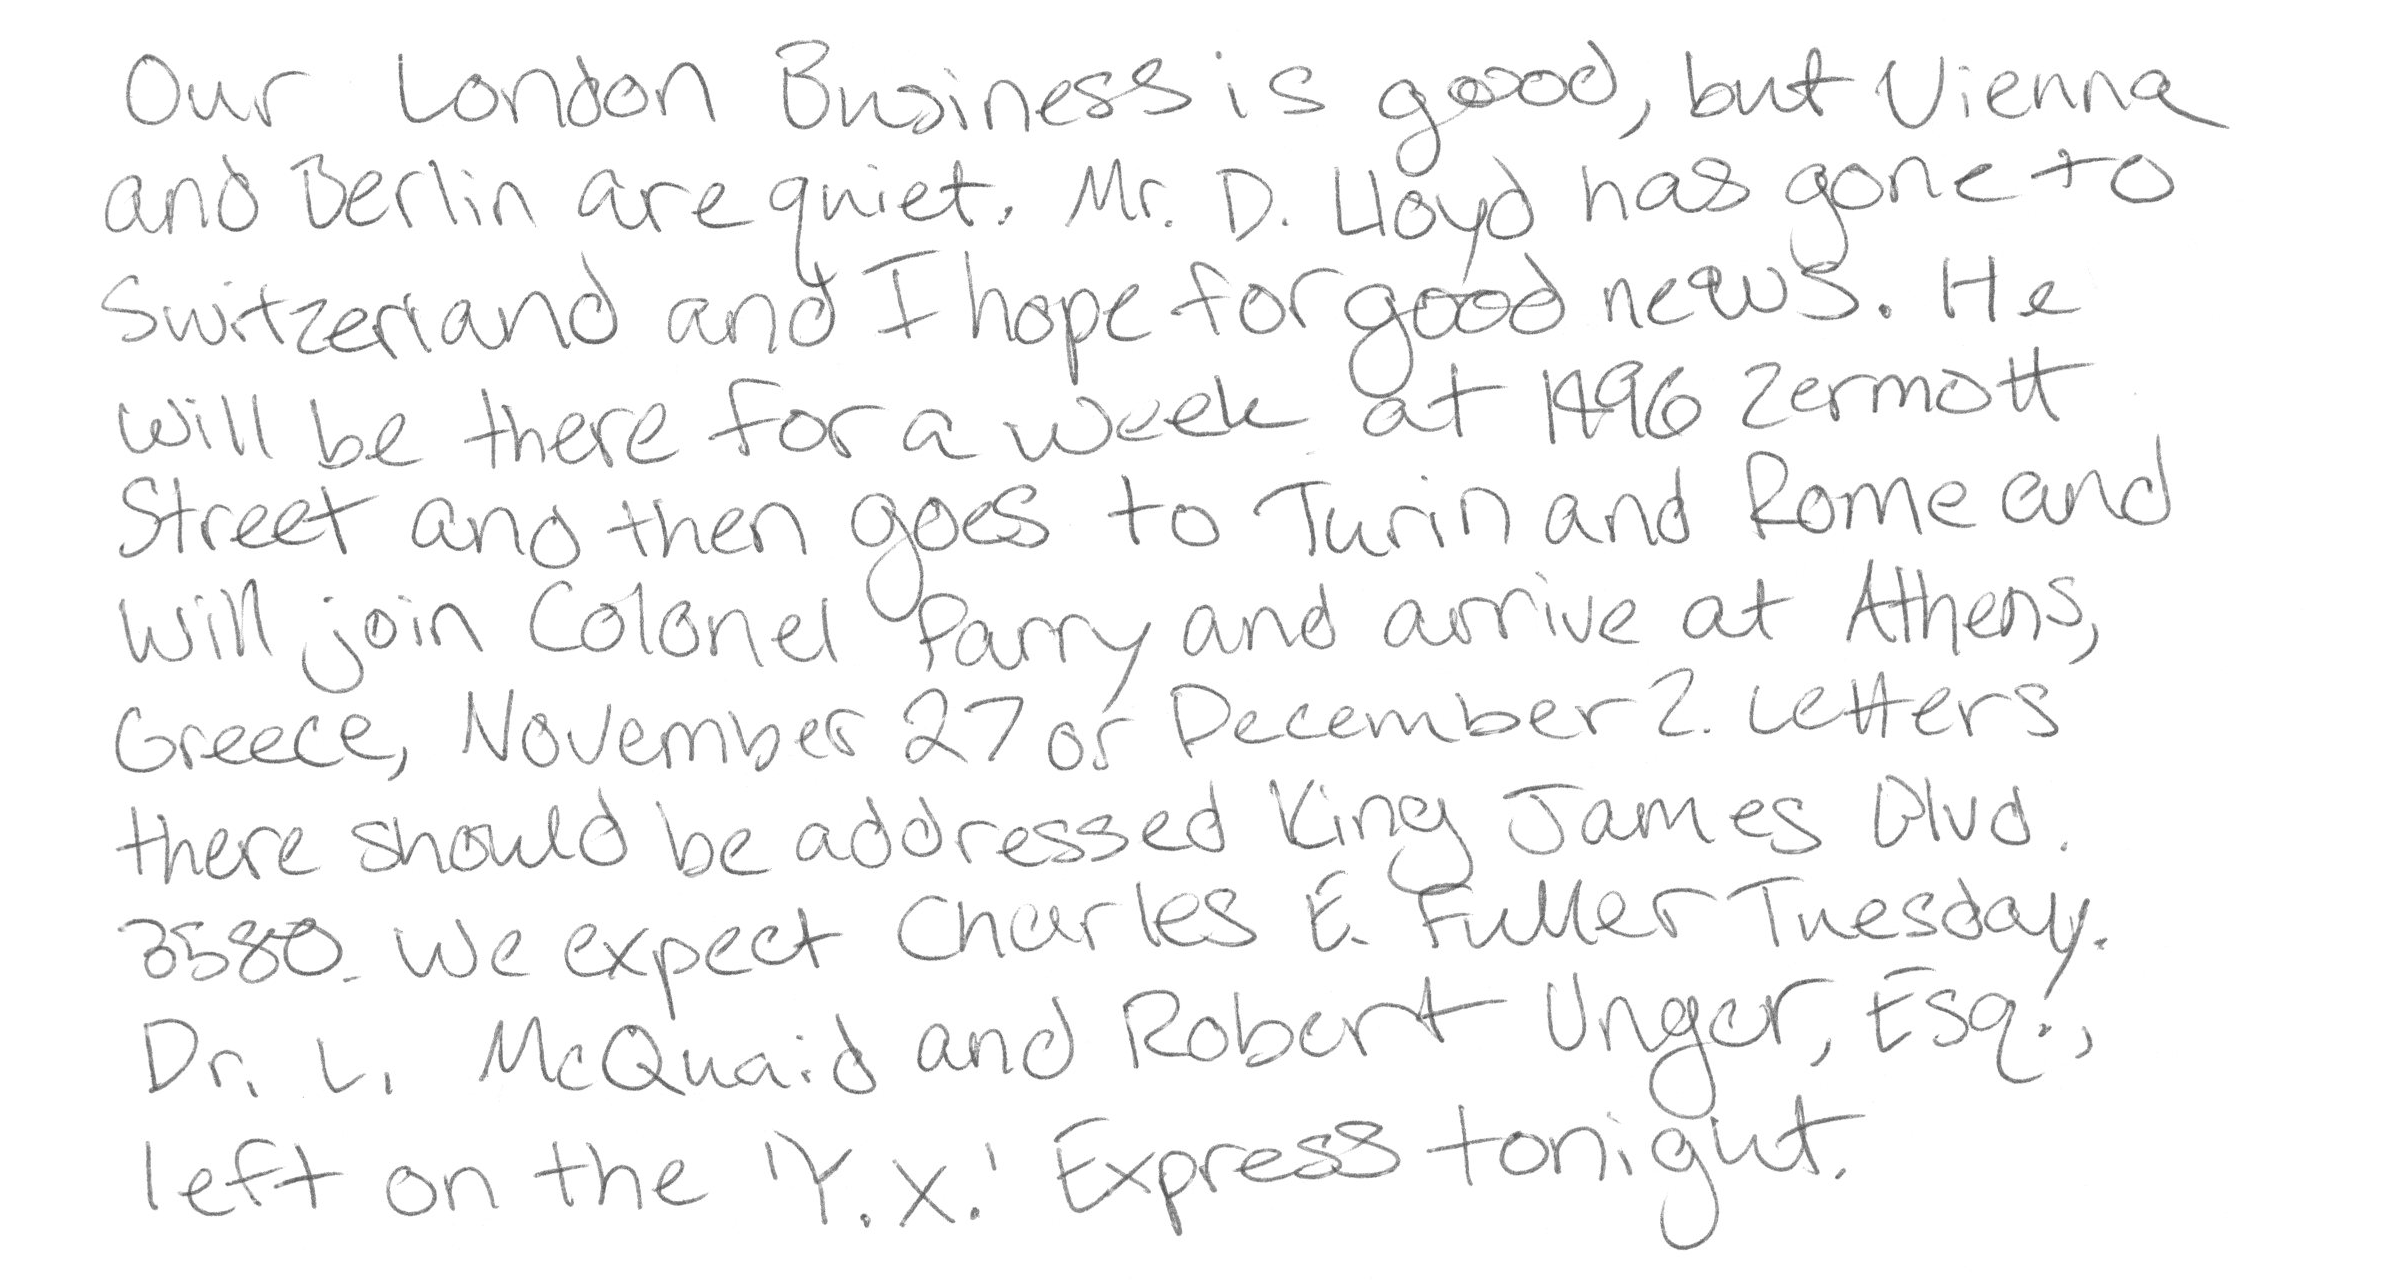 Our London Business is good, but Vienna
and Berlin are quiet. Mr. D. Lloyd has gone to
Switzerland and I hope for good news. He
will be there for a week at 1496 Zermott
Street and then goes to Turin and Rome and
will join Colonel Parry and arrive at Athens,
Greece, November 27 or December 2. Letters
there should be addressed King James Blvd.
3580. We expect Charles E. Fuller Tuesday.
Dr. L. McQuaid and Robert Unger, Esq.,
left on the 'Y.X.' Express tonight.